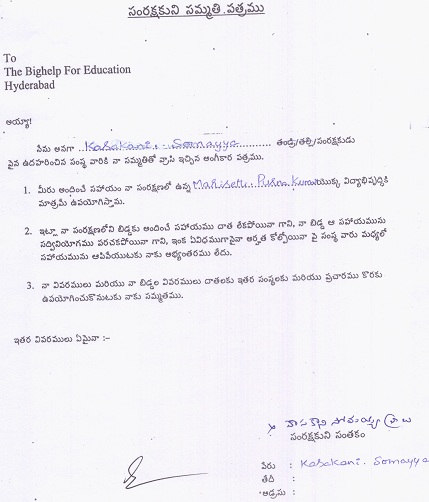 సంరక్షకుని సమ్మతి పత్రము
To
The Bighelp For Education
Hyderabad
అయ్యా!
నేను అనగా ..Kasakani. Somayya.......... తండ్రి/తల్లి/సంరక్షకుడు
పైన ఉదహరించిన సంస్థ వారికి నా సమ్మతితో వ్రాసి ఇచ్చిన అంగీకార పత్రము.
1. మీరు అందించే సహాయం నా సంరక్షణలో ఉన్న యొక్క విద్యాభివృద్ధికి
మాత్రమే ఉపయోగిస్తాను.
2. ఇట్లా నా సంరక్షణలోని బిడ్డకు అందించే సహాయము దాత లేకపోయినా గాని, నా బిడ్డ ఆ సహాయమును
సద్వినియోగము పరచకపోయినా గాని, ఇంక ఏవిధముగానైనా అర్హత కోల్పోయినా పై సంస్థ వారు మధ్యలో
సహాయమును ఆపివేయుటకు నాకు అభ్యంతరము లేదు.
3. నా వివరములు మరియు నా బిడ్డల వివరములు దాతలకు ఇతర సంస్థలకు మరియు ప్రచారము కొరకు
ఉపయోగించుకొనుటకు నాకు సమ్మతము.
ఇతర వివరములు ఏమైనా :-
సంరక్షకుని సంతకం
పేరు : Kasakani. Somayya
తేది :
అడ్రసు :